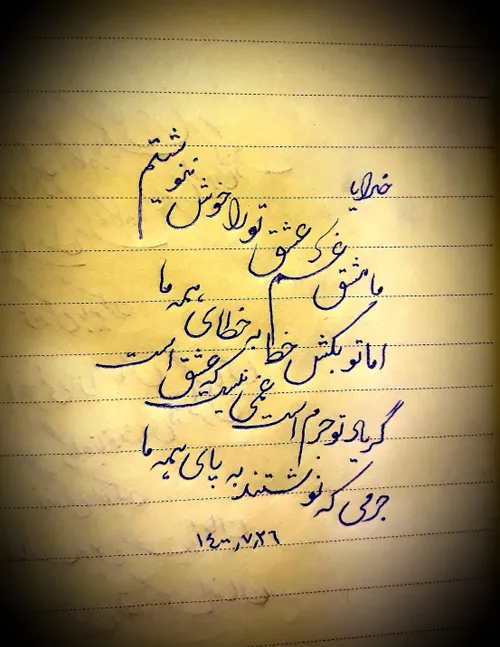 خدایا
ما مشق غم عشق تو را خوش ننوشتیم
اما تو بکش خط به خطای همه ما
گر یاد تو جرم است غمی نیست که عشق است
جرمی که نوشتند به پای همه ما
۱۴۰۰,۷,۲۶